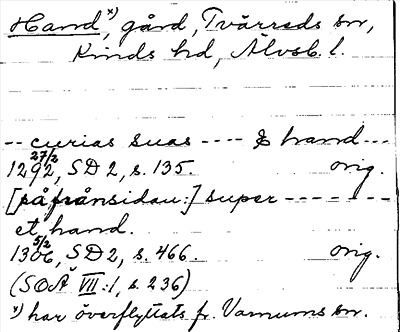 Hand *), gård, Tvärreds sn,
Kinds hd, Älvsb. l.
-- curias suas ---- & hand ---
27/2
1292, SD 2, s. 135. orig.
[påfrånsidan:] super -------
et hand.
5/2
1306, SD 2, s. 466. orig.
(SOÄ VII:1, s. 236)
*) har överflyttats fr. Varnums sn.